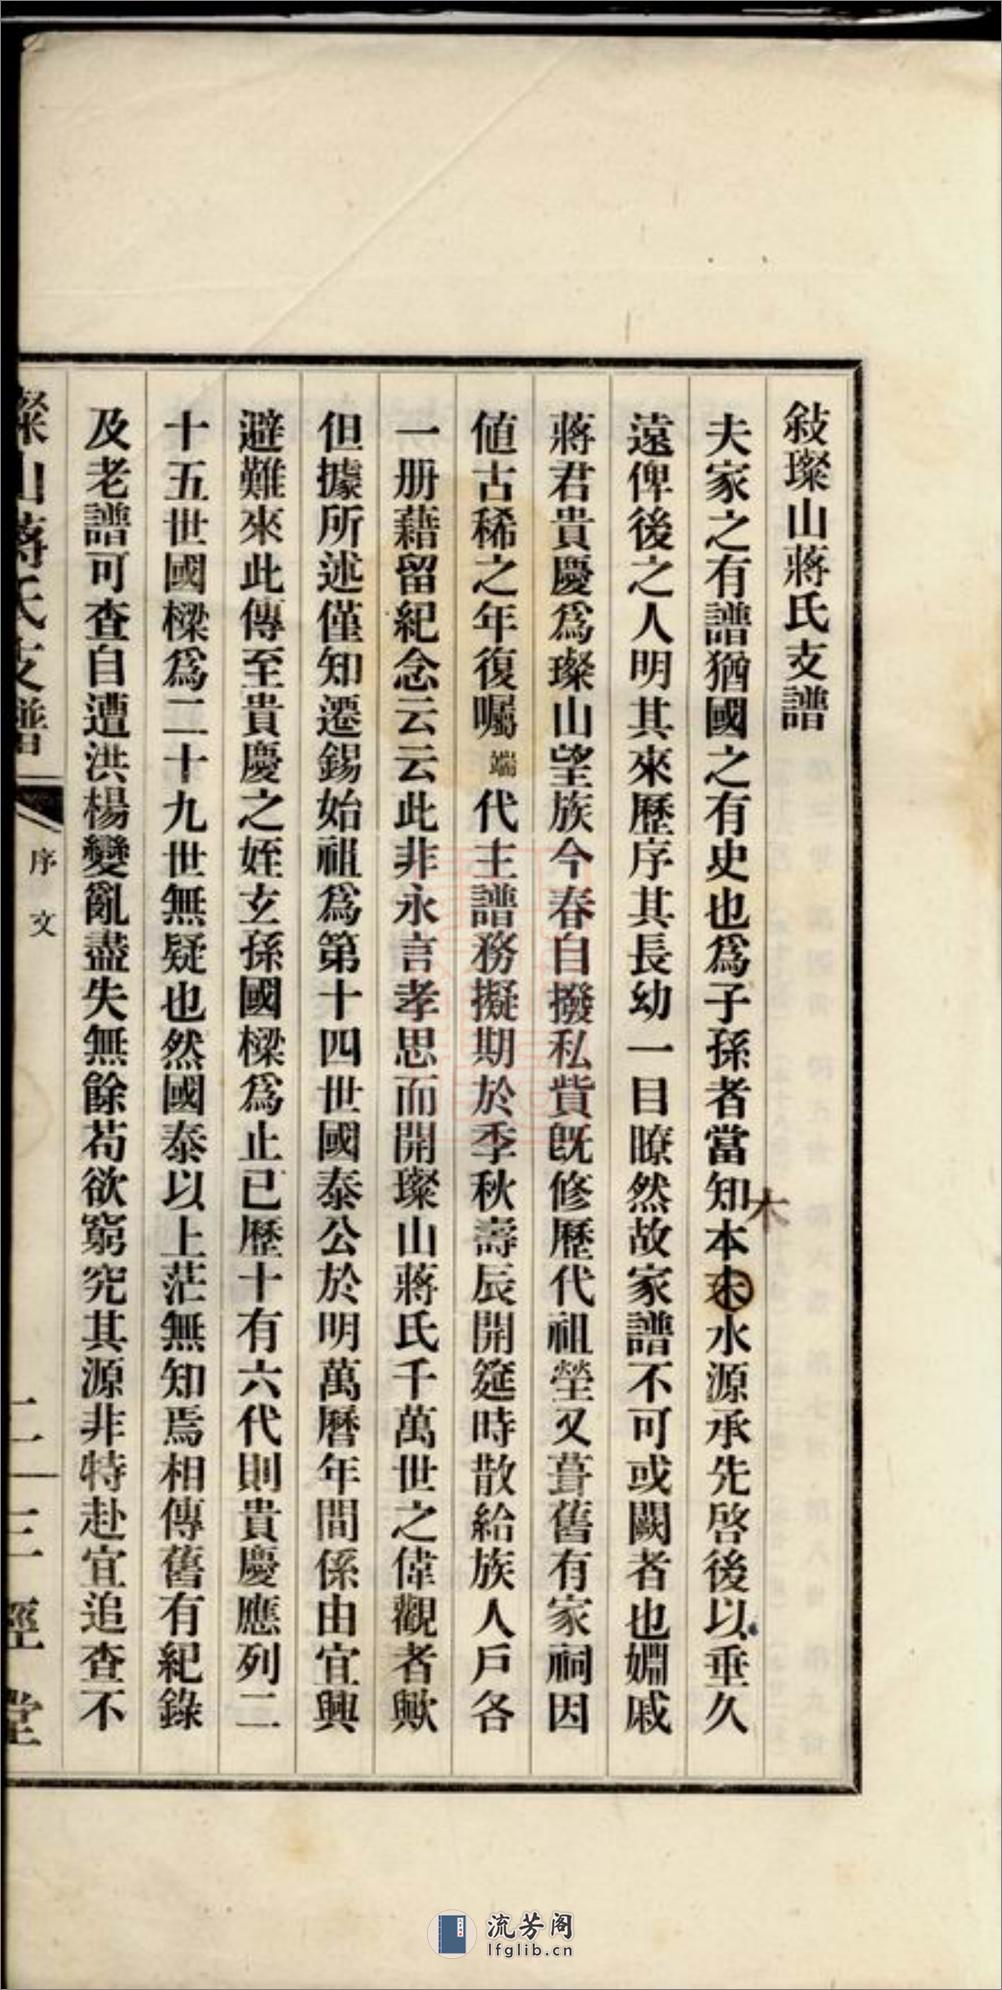 敍璨山蔣氏支譜
夫家之有譜猶國之有史也爲子孫者當知本末水源承先啓後以垂久
木
遠俾後之人明其來歷序其長幼一目瞭然故家譜不可或闕者也嫺戚
蔣君貴慶爲璨山望族今春自撥私貲既修歷代祖塋又葺舊有家祠因
値古稀之年復囑端代主譜務擬期於季秋壽辰開筵時散給族人戶各
一册藉留紀念云云此非永言孝思而開璨山蔣氏千萬世之偉觀者歟
但據所述僅知遷錫始祖爲第十四世國泰公於明萬曆年間係由宜興
避難來此傳至貴慶之姪玄孫國樑爲止已歷十有六代則貴慶應列二
十五世國樑爲二十九世無疑也然國泰以上茫無知焉相傳舊有紀錄
及老譜可查自遭洪楊變亂盡失無餘苟欲窮究其源非特赴宜追查不
璨山蔣氏支譜
序文
一
三徑堂
流芳阁
lfglib.cn